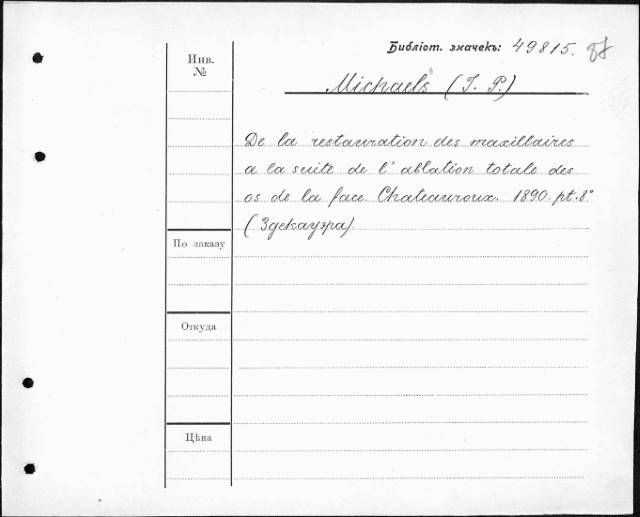 Библіот. значекъ: 49815.
Инв.
№
Michaels (J. P.)
De la restauration des maxillaires
a la suite de l'ablation totale des
os de la face. Chateauroux. 1890. pt. 8°
(Здекауэра).
По заказу
Откуда
Цѣна